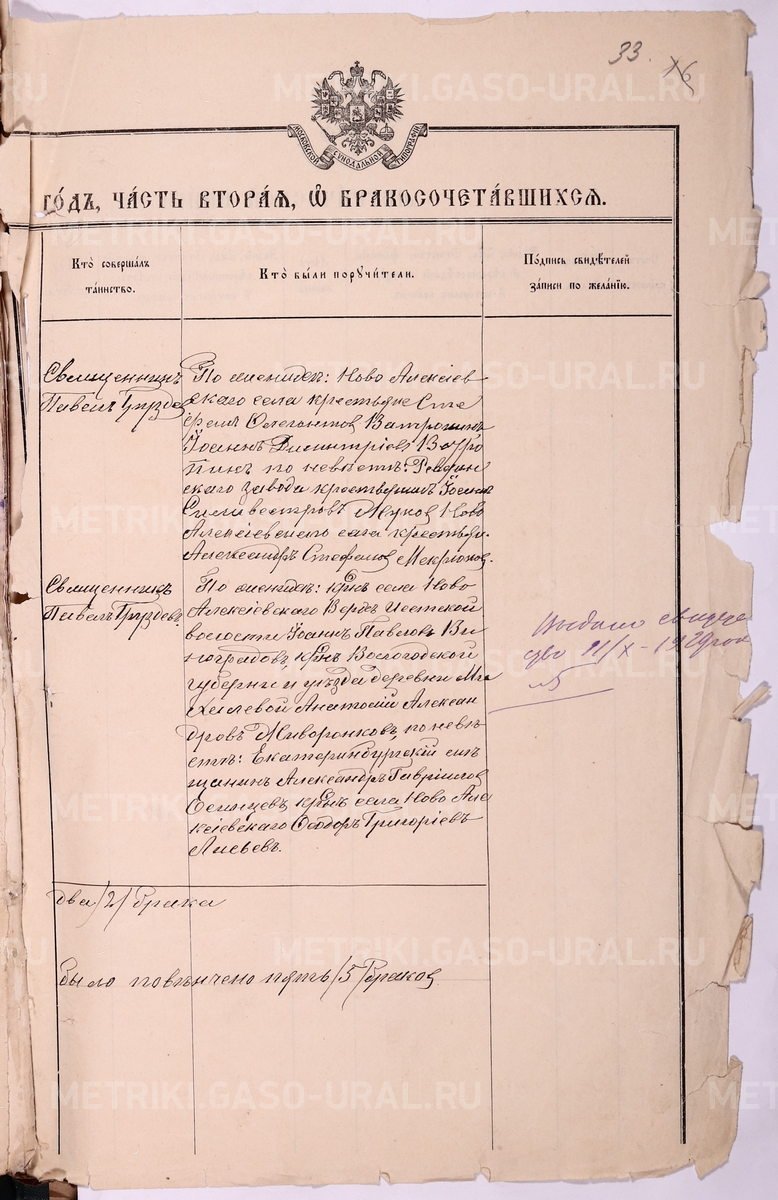 33. 16
МОСКОВСКОЙ СѴНОДАЛЬНОЙ ТИПОГРАФІИ
ГО́ДЪ, ЧА́СТЬ ВТОРА́Ѧ, Ѡ҆ БРАКОСОЧЕТА́ВШИХСѦ.
Кто̀ соверша́лъ
та́инство.
Кто̀ бы́ли порꙋчи́тели.
По́дпись свидѣ́телей
за́писи по жела́нїю.
Священникъ
Павелъ Груздев
По женихѣ: Ново Алексіев
скаго села крестьяне Сте
фанъ
Іоаннъ Димитріевъ
по невѣстѣ: Ревдин
скаго завода крестьянинъ
Силивестровъ Ново
Алексіевскаго села крестьян.
Александръ Стефанов
Священникъ
Павелъ Груздевъ.
По женихѣ: крнъ села Ново
Алексіевскаго Верхъ Исетской
волости Іоаннъ Павловъ Ви
ноградовъ, крнъ Вологодской
губерніи и уѣзда деревни
Анатолій Алексан
дровъ Живоронковъ, по невѣ
стѣ: Екатеринбургскій мѣ
щанинъ Александръ Гавріилов
Осинцевъ, крнъ села Ново Але
ксіевскаго Ѳеодоръ Григоріевъ
Лисьевъ.
Выдано свидѣте
ство 11/X - 1929 год
два /2/ брака
было повѣнчено пять /5/ браков
METRIKI.GASO-URAL.RU